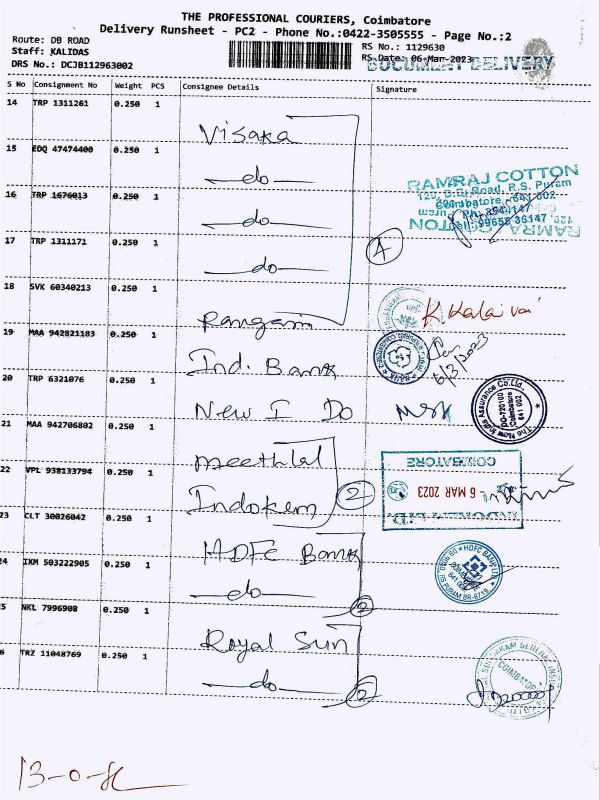 THE PROFESSIONAL COURIERS, Coimbatore
Delivery Runsheet - PC2 - Phone No.:0422-3505555 - Page No.:2
Route: DB ROAD
Staff: KALIDAS
DRS No.: DCJB112963002
RS No.: 1129630
RS Date: 06-Mar-2023
DOCUMENT DELIVERY
S No Consignment No Weight PCS Consignee Details Signature
14 TRP 1311261 0.250 1
Visaka
15 EDQ 47474400 0.250 1
do
RAMRAJ COTTON
16 TRP 1676013 0.250 1
do
17 TRP 1311171 0.250 1
do
4
18 SVK 60340213 0.250 1
Rangam
K. Kalai vani
19 MAA 942821183 0.250 1
Ind. Bank
6/3/2023
20 TRP 6321076 0.250 1
New I Do
The New India Assurance Co. Ltd.,
DO-720100
Coimbatore
641 002
21 MAA 942706802 0.250 1
meethlal
COIMBATORE
22 VPL 938133794 0.250 1
Indokem
2
6 MAR 2023
INDOKEM LTD.
23 CLT 30026042 0.250 1
HDFC Bank
HDFC BANK LTD
24 IKM 503222905 0.250 1
do
2
25 NKL 7996908 0.250 1
Royal Sun
26 TRZ 11048769 0.250 1
do
2